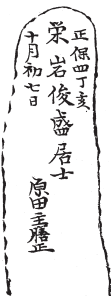 正保四丁亥
栄岩俊盛居士
十月初七日
原田